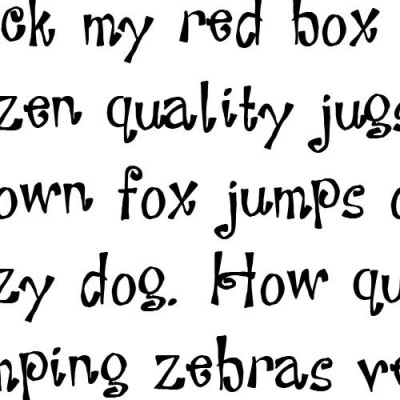 ck my red box
zen quality jugs
own fox jumps o
zy dog. How qu
mping zebras ve